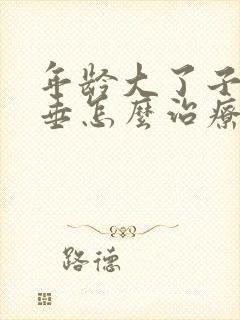 年龄大了子
垂怎麼治療
路德